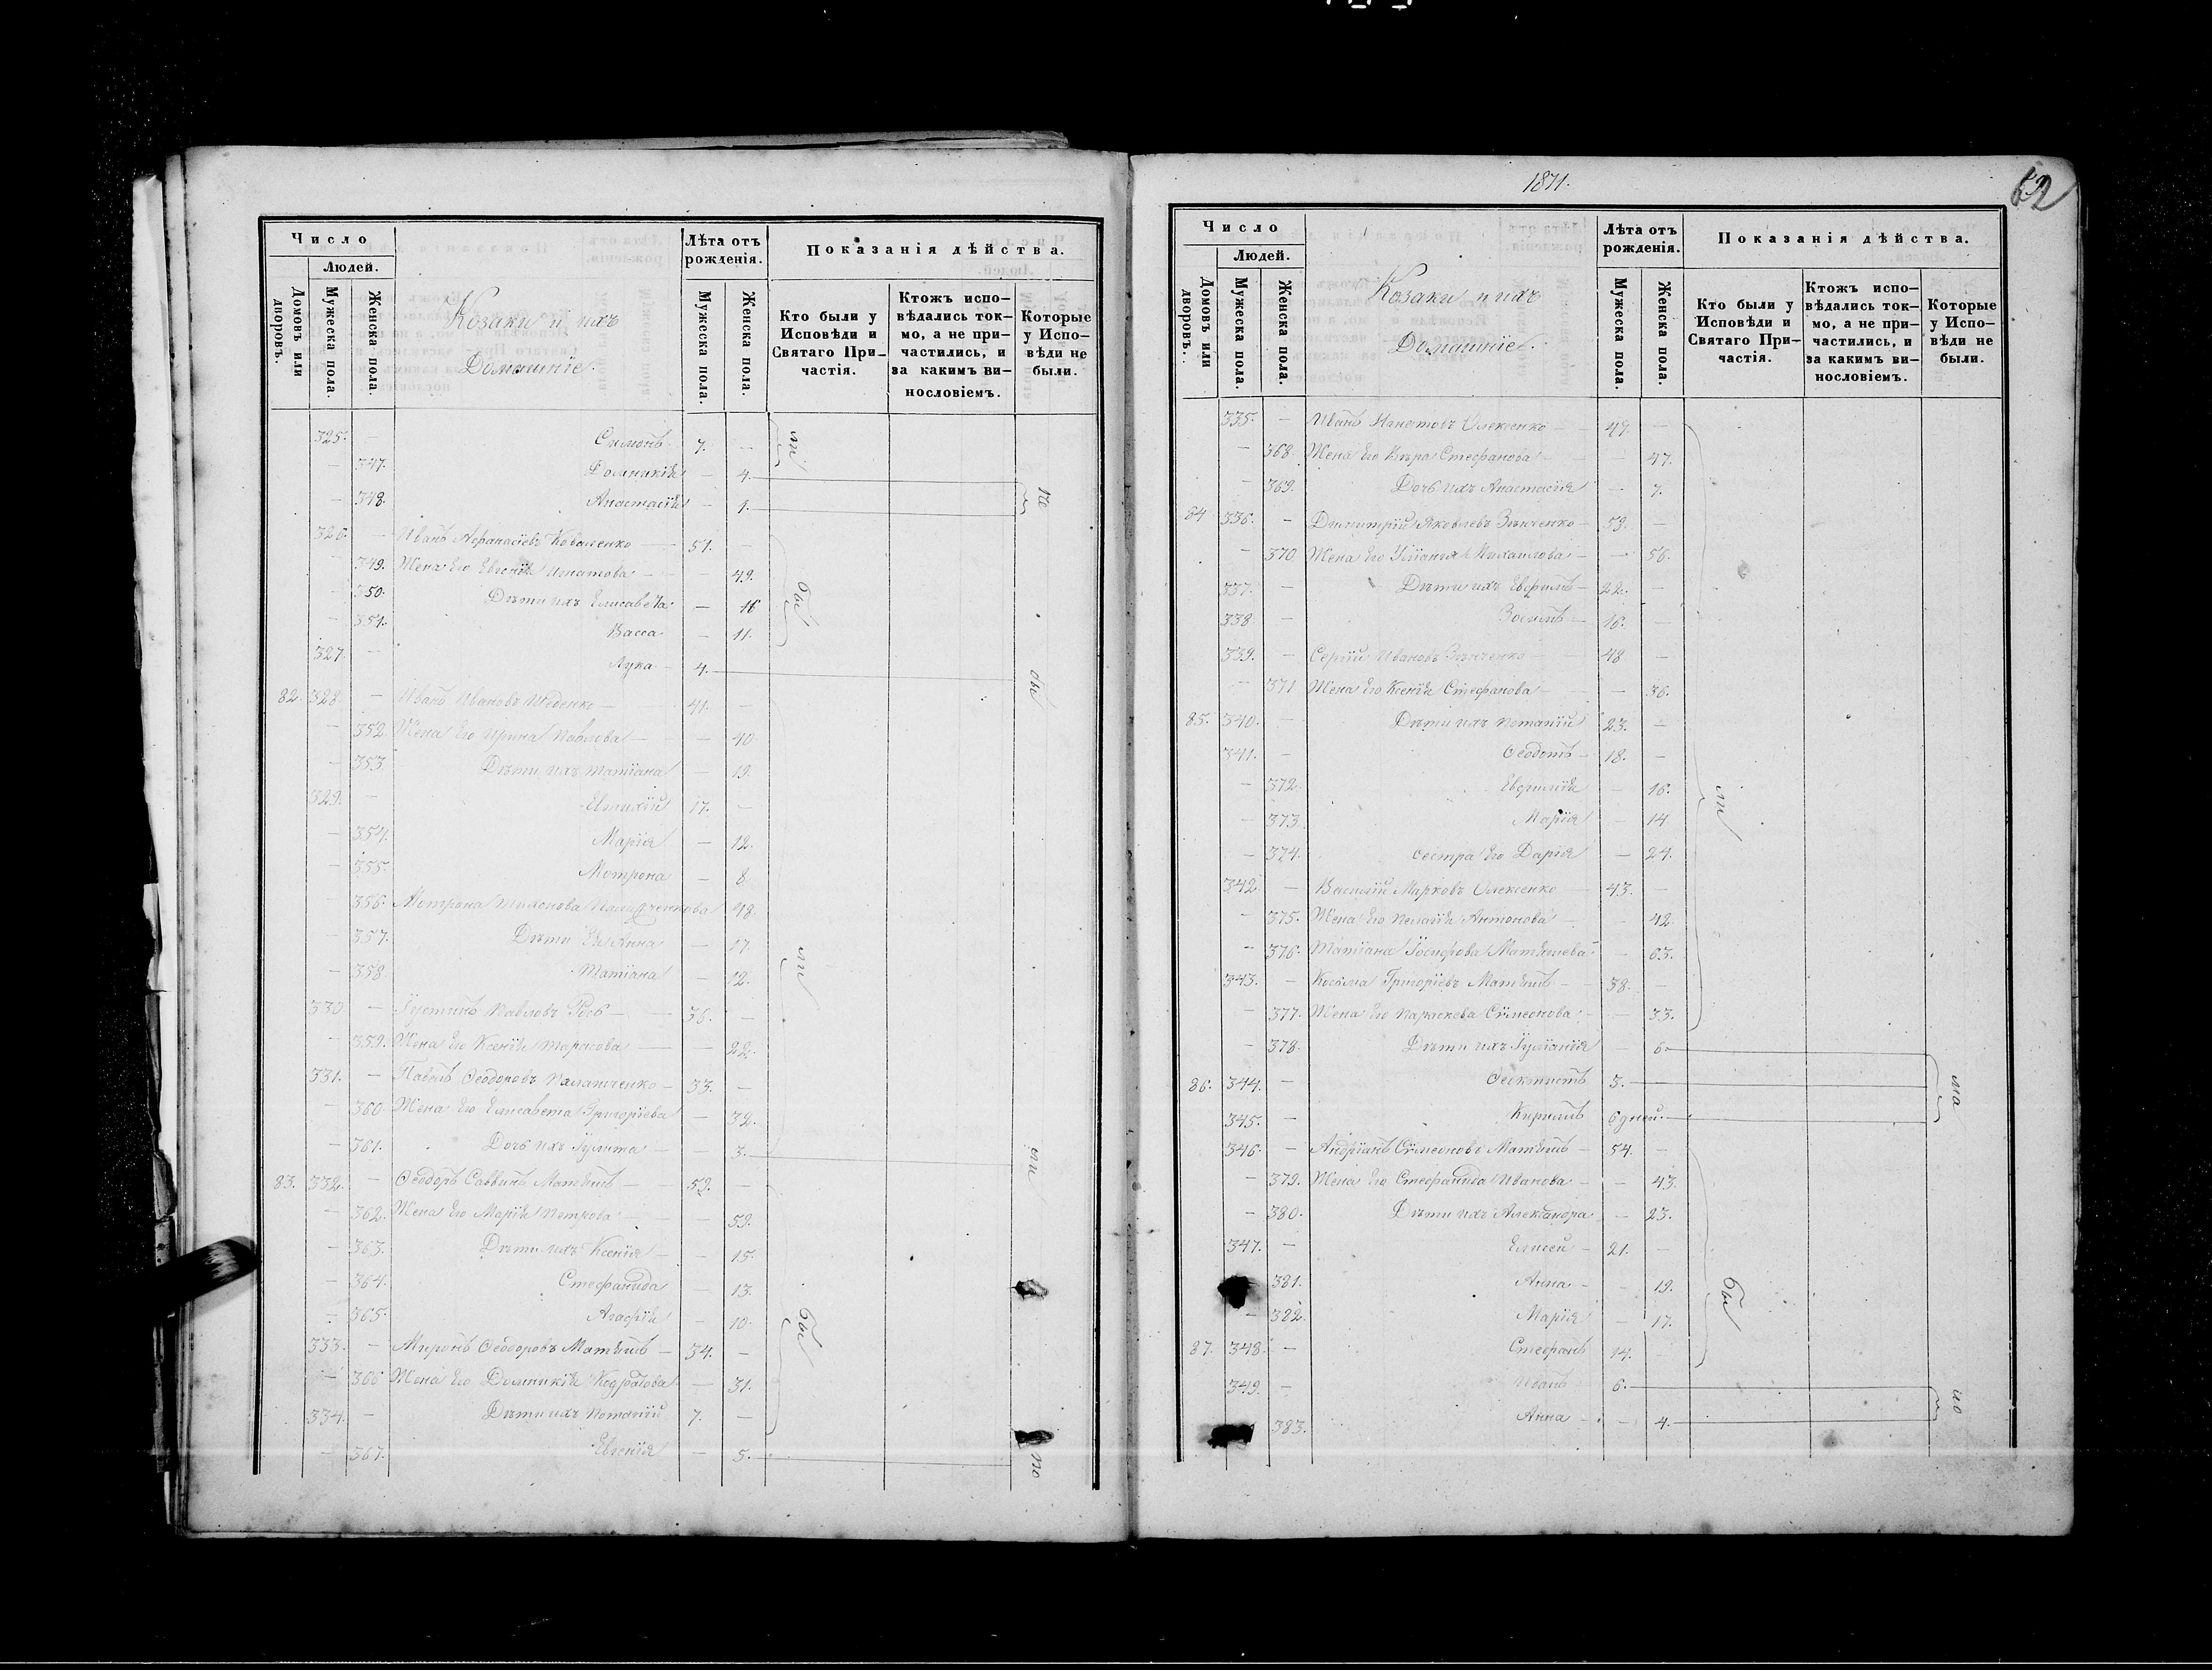 Число
Людей.
Домовъ или дворовъ.
Мужеска пола.
Женска пола.
Козаки и ихъ
Домашніе.
Лѣта отъ рожденія.
Мужеска пола.
Женска пола.
Показанія дѣйства.
Кто были у Исповѣди и Святаго При-частія.
Ктожъ испо-вѣдались ток-мо, а не при-частились, и за какимъ ви-нословіемъ.
Которые у Испо-вѣди не были.
325. — Симонъ 7. —
— 347. Домникія — 4.
— 348. Анастасія — 1.
326. — Иванъ Афанасіевъ Коваленко 51. —
— 349. Жена Его Евгенія Игнатова — 49.
— 350. Дѣти ихъ Елисавета — 16
— 351. Васса — 11.
327. — Лука 4.
82. 328. — Иванъ Ивановъ 41. —
— 352. Жена Его Ирина Павлова — 40.
— 353. Дѣти ихъ Татіана — 19.
329. — Евтихій 17. —
— 354. Марія — 12.
— 355. Мотрона — 8.
— 356. Мотрона 48.
— 357. Дѣти Ея Анна — 17.
— 358. Татіана — 12.
330. — Іустинъ Павловъ 35. —
— 359. Жена Его Ксенія Тарасова — 22.
331. — Павелъ Ѳеодоровъ 33. —
— 360. Жена Его Елисавета Григоріева — 32.
— 361. Дочь ихъ Іулитта — 3.
83. 332. — Ѳеодоръ Саввинъ Матяшъ — 52. —
— 362. Жена Его Марія Петрова — 59.
— 363. Дѣти ихъ Ксенія — 15.
— 364. Стефанида — 13.
— 365. Агафія — 10.
333. — Миронъ Ѳеодоровъ Матяшъ — 34. —
— 366. Жена Его Домникія — 31.
334. — Дѣти ихъ Потапій 7. —
— 367. Евгенія — 5.
бы
ли
бы
не
бы
ли
по
1871.
52
Число
Людей.
Домовъ или дворовъ.
Мужеска пола.
Женска пола.
Козаки и ихъ
Домашніе.
Лѣта отъ рожденія.
Мужеска пола.
Женска пола.
Показанія дѣйства.
Кто были у Исповѣди и Святаго При-частія.
Ктожъ испо-вѣдались ток-мо, а не при-частились, и за какимъ ви-нословіемъ.
Которые у Испо-вѣди не были.
335. — Иванъ Игнатовъ Олексенко — 49. —
— 368. Жена Его Стефанова — 47.
— 369. Дочь ихъ Анастасія — 7.
84 336. — Димитрій Яковлевъ Зѣнченко — 53. —
— 370 Жена Его Уліанія Михаилова — 56.
337. — Дѣти ихъ Евфимъ — 22. —
338 — Зосимъ — 16. —
339. — Сергій Ивановъ Зѣнченко 48 —
— 371 Жена Его Ксенія Стефанова — 36.
85. 340. — Дѣти ихъ Потапій 23. —
341. — Ѳеодотъ — 18. —
— 372. Евфимія — 16.
— 373. Марія — 14
— 374. сестра Его Дарія — 24.
342 — Василій Марковъ Олексенко 43. —
— 375. Жена Его Пелагія Антонова — 42.
— 376. Татіана Іосифова Матяшева — 63.
343. — Косьма Григоріевъ Матяшъ — 38. —
— 377. Жена Его Параскева Сѵмеонова — 33.
— 378. Дѣти ихъ Іуліанія — 6.
86. 344. — Ѳеоктистъ 3.
345. — Кириллъ 6 дней.
346. — Андріанъ Сѵмеоновъ Матяшъ — 54. —
— 379. Жена Его Стефанида Иванова — 43.
— 380. Дѣти ихъ Александра — 23.
347. — Елисей — 21. —
381. Анна — 19.
— 382. Марія — 17.
87. 348. — Стефанъ 14. —
349. — Иванъ 6.
383. Анна — 4.
ли
бы